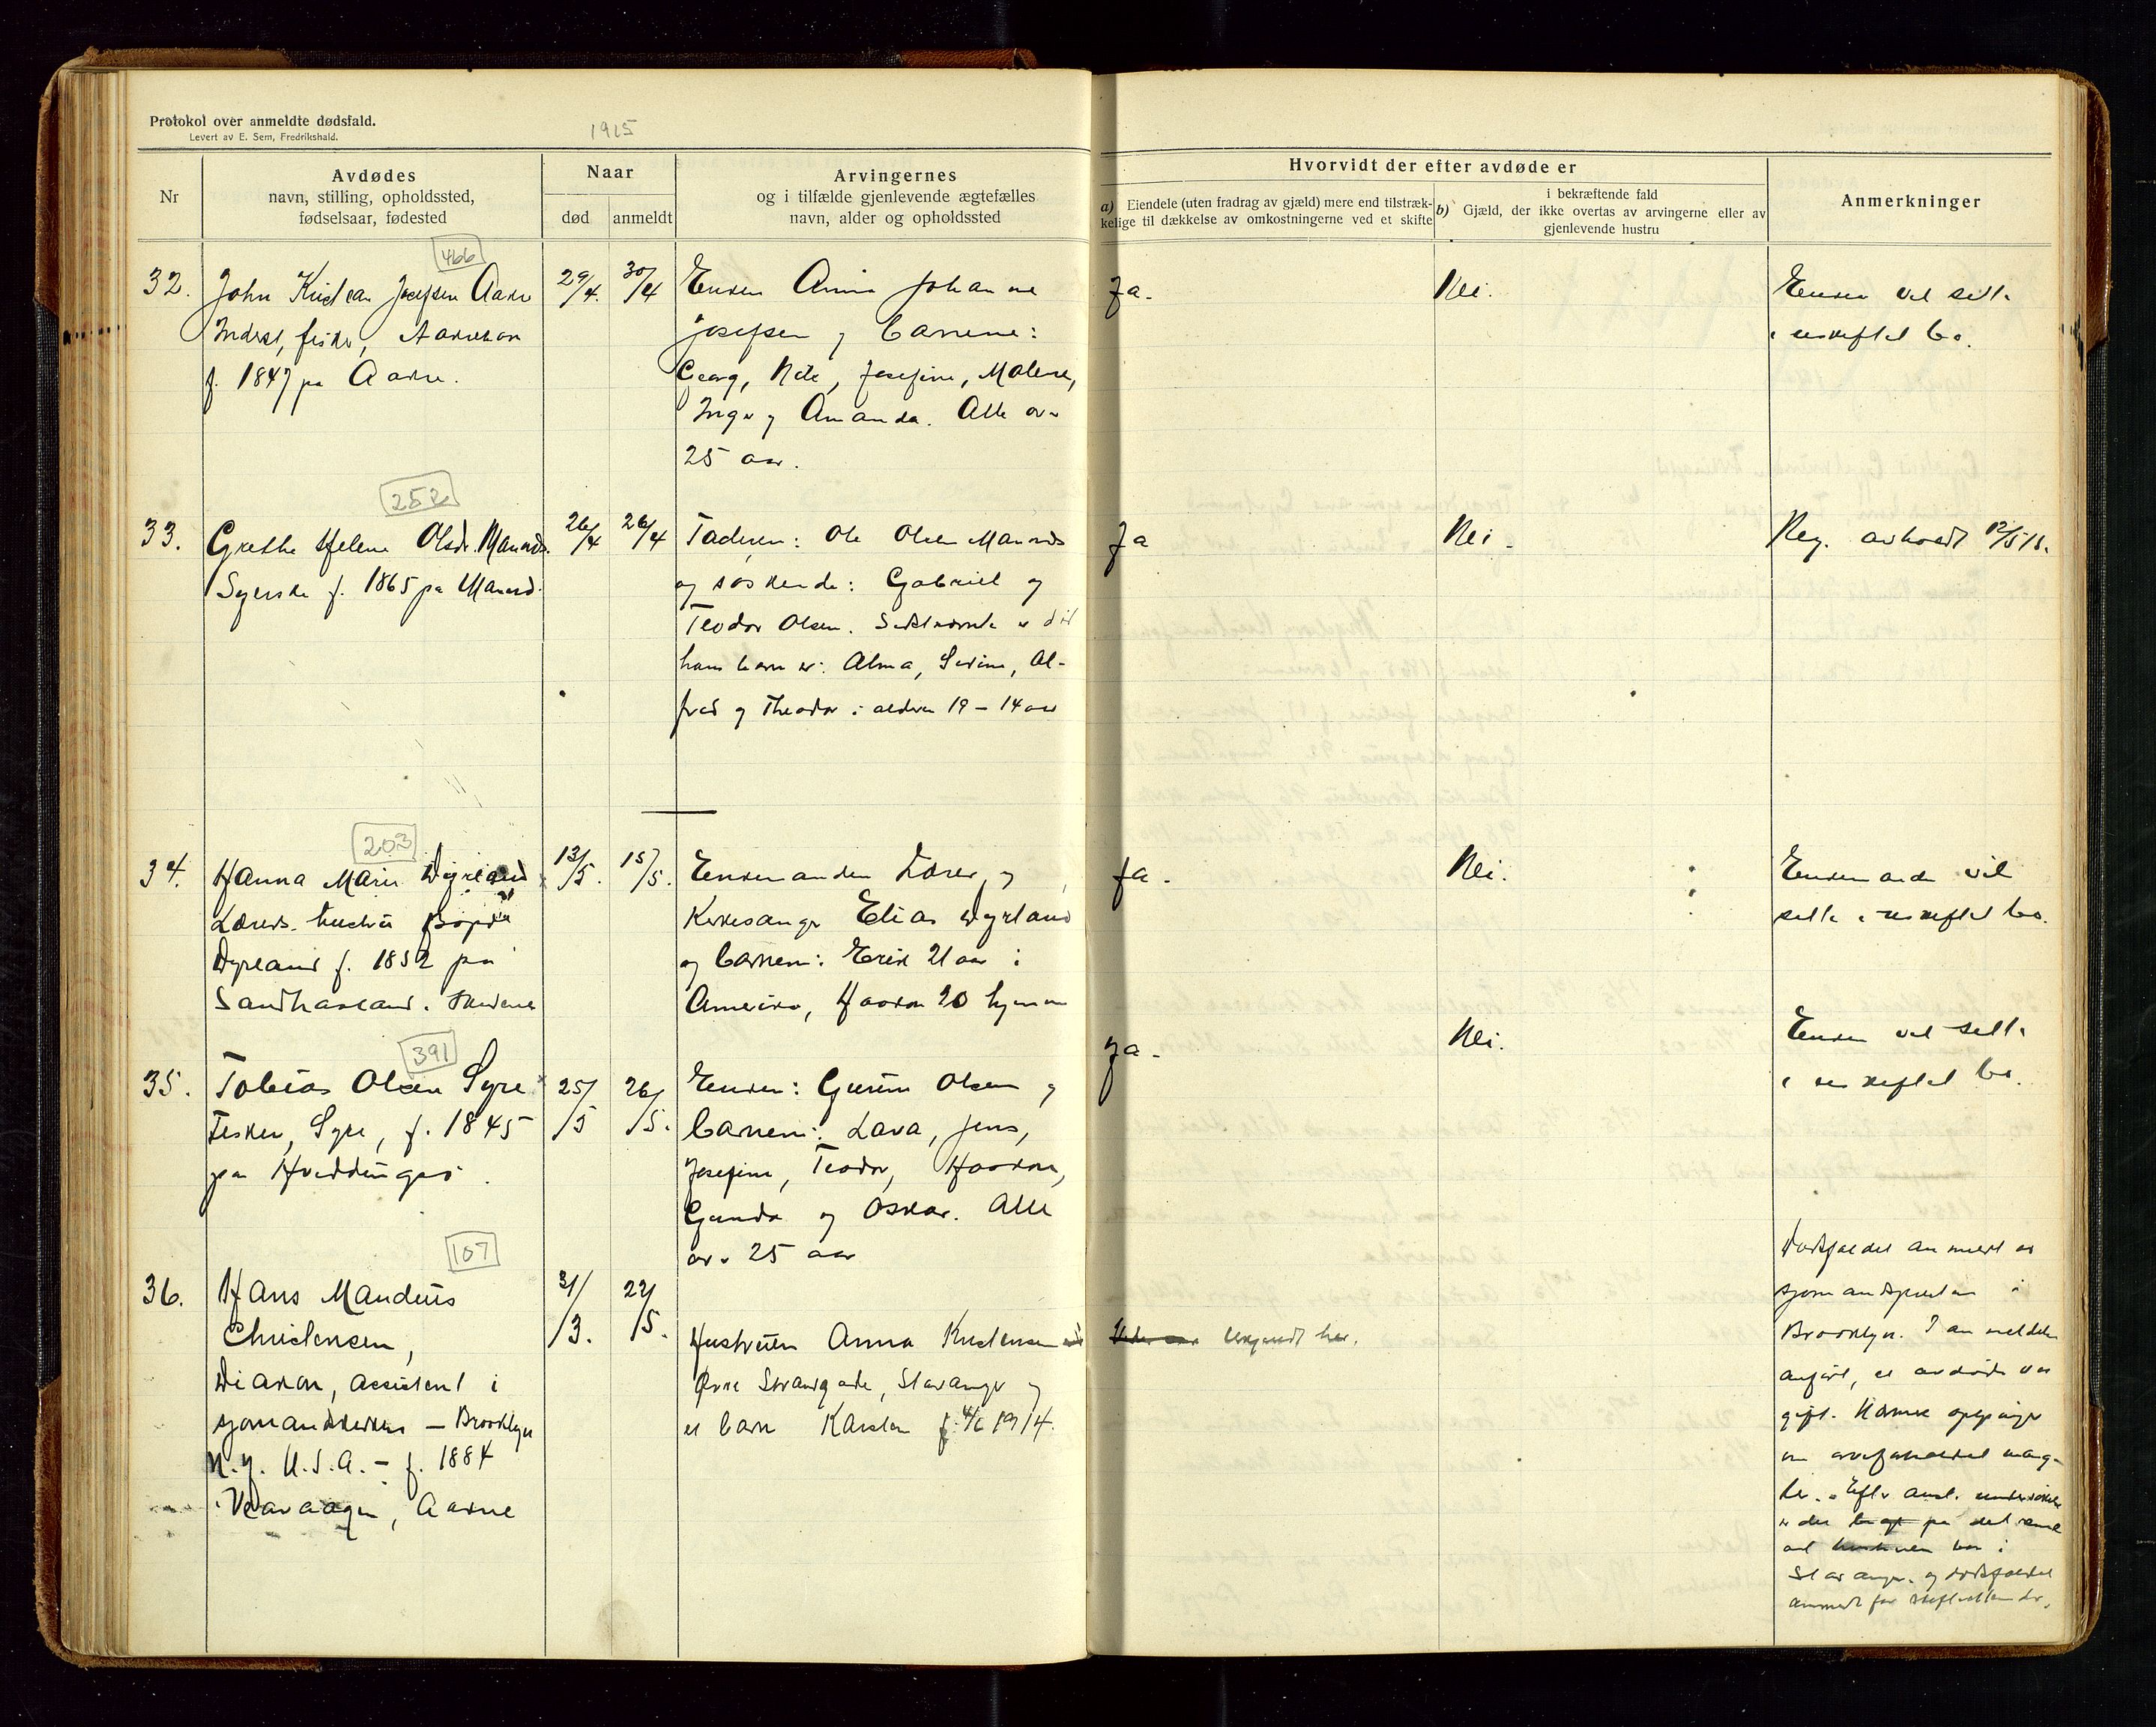 Protokol over anmeldte dødsfald.
Levert av E. Sem, Fredrikshald.
1915
Nr
Avdødes
navn, stilling, opholdssted,
fødselsaar, fødested
Naar
død
anmeldt
Arvingernes
og i tilfælde gjenlevende ægtefælles
navn, alder og opholdssted
Hvorvidt der efter avdøde er
a) Eiendele (uten fradrag av gjæld) mere end tilstræk-
kelige til dækkelse av omkostningerne ved et skifte
b) i bekræftende fald
Gjæld, der ikke overtas av arvingerne eller av
gjenlevende hustru
Anmerkninger
466
32.
John Kristian Josefsen Aakre
Inderst, fisker,
f. 1847 pa Aakre.
29/4.
30/4
Enken Anna Johanne
Josefsen og barnene:
Georg, Nils, Josefine, Malene,
Inger og Amanda. Alle over
25 aar.
Ja.
Nei.
Enken vil sitte
i uskiftet bo.
252
33.
Grethe Helene Olsdr. Mannes.
Syerske f. 1865 pa Mannes.
26/4
26/4
Faderen: Ole Olsen Mannes
og søskende: Gabriel og
Teodor Olsen. Sidstnævnte er død
hans barn er: Alma, Serine, Al-
fred og Theodor i alderen 19 - 14 aar
Ja
Nei.
Reg. avholdt 12/5 15.
203
34.
Hanna Marie Dyrland
Lærers hustru
Dyrland f. 1852 paa
Sandhaaland. Skudenes
13/5.
15/5.
Enkemanden Lærer og
Kirkesanger Elias Dyrland
og barnene: Erik 21 aar i
Amerika, Haakon 20 hjemme
Ja.
Nei.
Enkemanden vil
sitte i uskiftet bo.
391
35.
Tobias Olsen Syre
Fisker, Syre, f. 1845
pa Hviddingsø.
25/5
26/5.
Enken: Gurine Olsen og
barnene: Lava, Jens,
Josefine, Teodor, Haakon,
Gunda og Oskar. Alle
over 25 aar
Ja.
Nei.
Enken vil sitte
i uskiftet bo.
107
36.
Hans Mandius
Christensen,
Diakon, assistent i
sjømandskirken - Brooklyn
N.Y. U.S.A. - f. 1884
i Veavaagen, Aakre
31/3.
22/5.
Hustruen Anna Kristensen
Øvre Strandgade, Stavanger og
et barn Karsten f. 4/6 1914.
ubekjendt her.
Dødsfaldet anmeldt av
sjømandspresten i
Brooklyn. I anmeldelsen
anført, at avdøde var
gift. Nærmere oplysninger
om arveforholdet mang-
ler. Efter anst. undersøkelse
er det bragt på det rene
at hustruen bor i
Stavanger og dødsfaldet
anmeldt for skifteretten der.